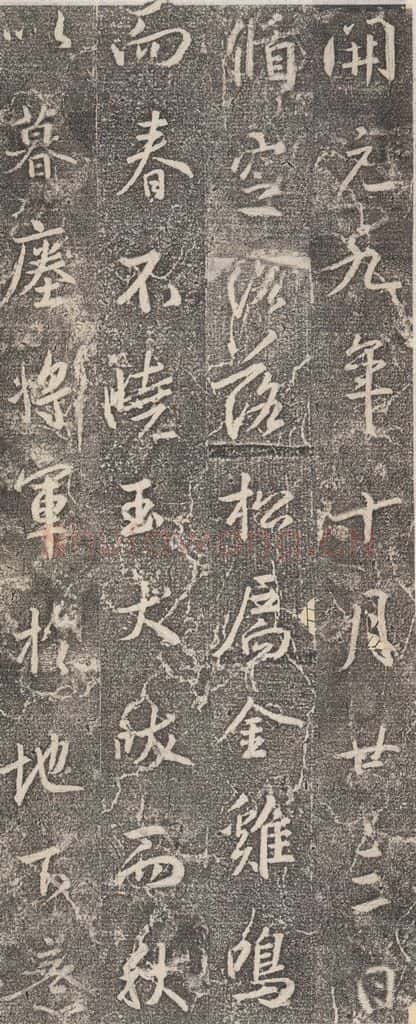 開元九年十月廿三日
空落松金雞鳴
而春不曉玉犬吠而秋
以暮塵將軍於地下